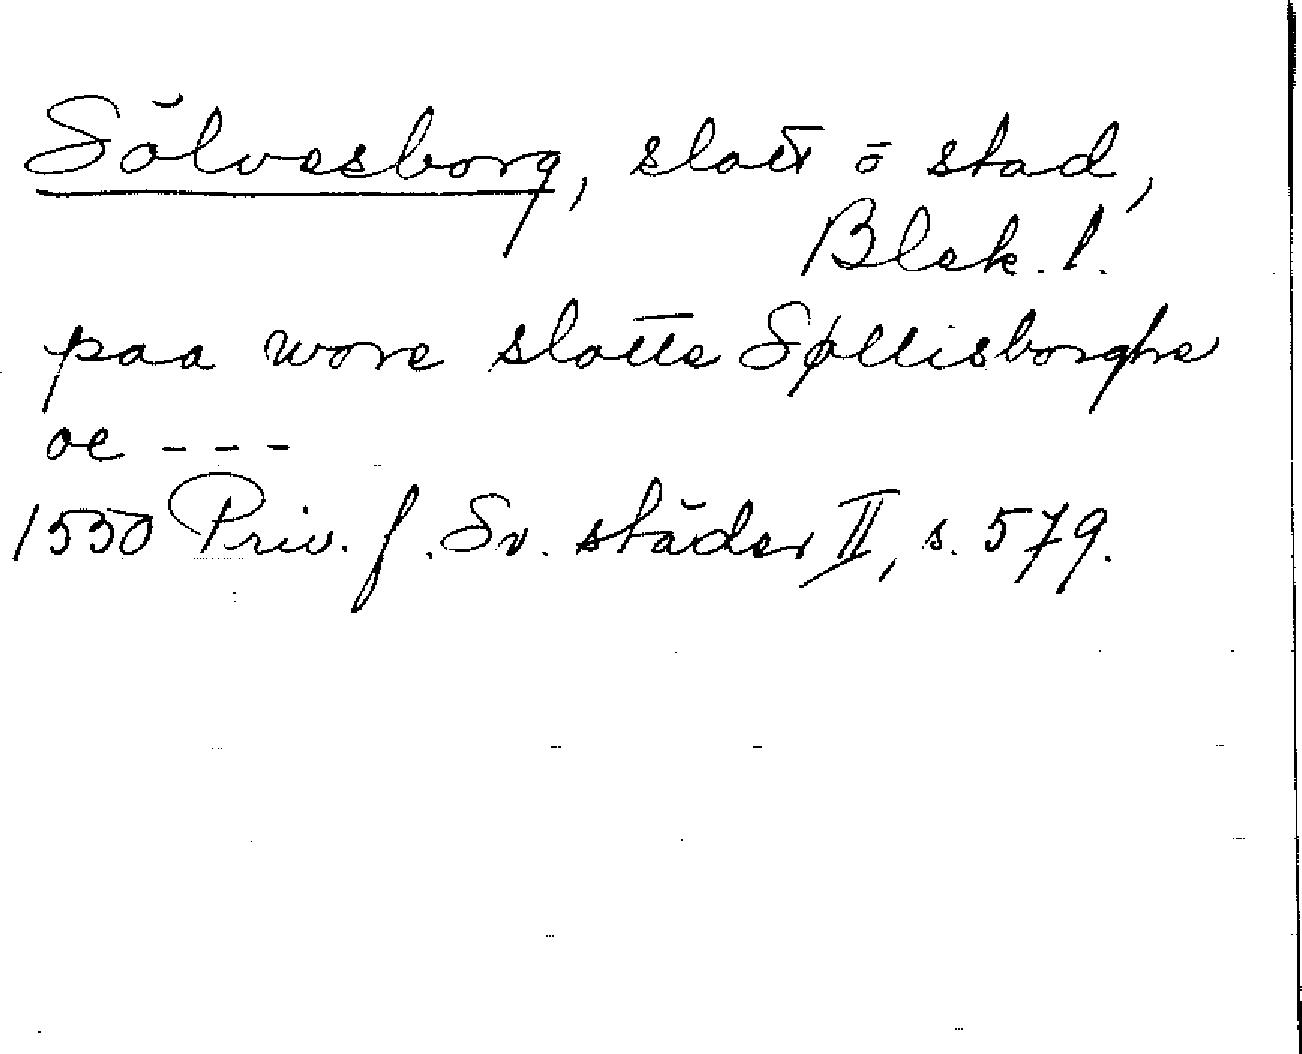 Sölvesborg, slott o stad,
Blek. l.
paa wore slotte Søllisborghe
oc - - -
1550 Priv. f. Sv. städer II, s. 579.